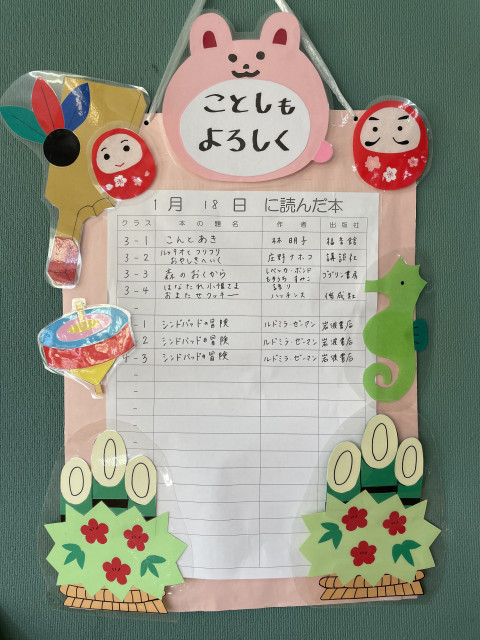 ことしも
よろしく
1月 18日 に読んだ本
クラス 本の題名 作者 出版社
3-1 こんとあき 林明子 福音館
3-2 ルッキオとフリフリ おやしきへいく 庄野ナホコ 講談社
3-3 森のおくから レベッカ・ボンド もりうち すみこ ゴブリン書房
3-4 はなたれ小僧さま おまたせクッキー ハッチンス 偕成社
-1 シンドバッドの冒険 ルドミラ・ゼーマン 岩波書店
-2 シンドバッドの冒険 ルドミラ・ゼーマン 岩波書店
4-3 シンドバッドの冒険 ルドミラ・ゼーマン 岩波書店